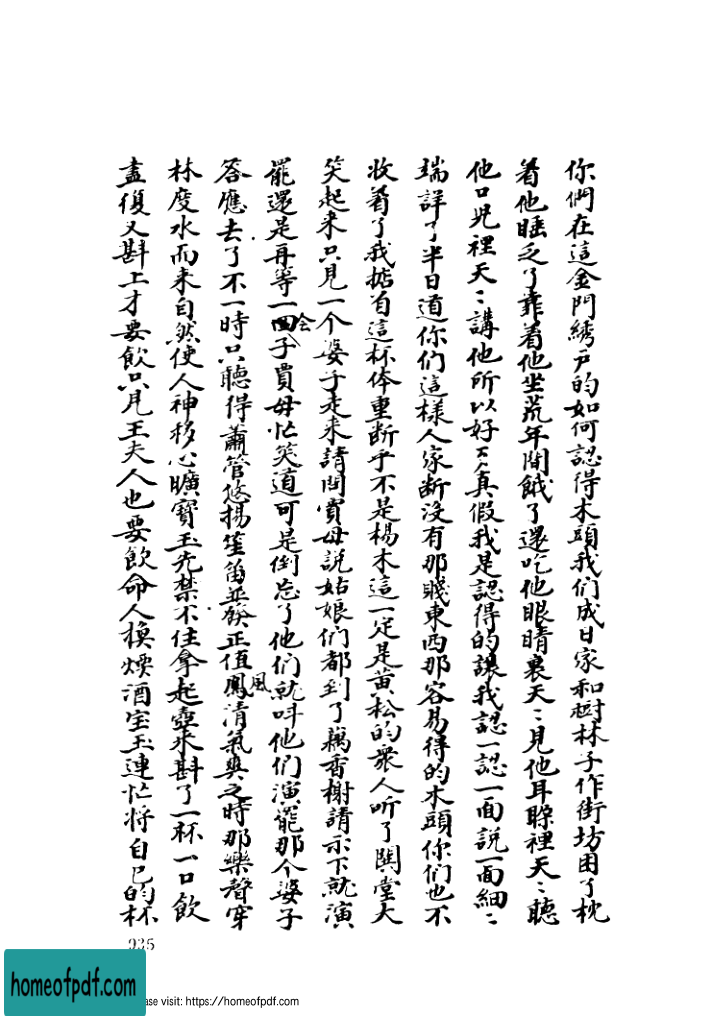 你們在這金門綉户的如何認得木頭我们成日家和樹林子作街坊困了枕
着他睡乏了靠着他坐荒年間餓了還吃他眼睛裏天〻見他耳躲裡天〻聽
他口児裡天〻講他所以好歹真假我是認得的讓我認一認一面説一面細〻
端詳了半日道你们這様人家断没有那賤東西那容易得的木頭你们也不
收着了我掂着這杯体重断乎不是楊木這一定是黄松的衆人听了鬨堂大
笑起来只見一个婆子走来請問賈母説姑娘们都到了藕香榭請示下就演
罷還是再等一回会子賈母忙笑道可是倒忘了他们就叫他们演罷那个婆子
答應去了不一時只聽得蕭管悠揚笙笛並發正值風清氣爽之時那樂聲穿
林度水而来自然使人神移心曠寳玉先禁不住拿起壺来斟了一杯一口飲
盡復又斟上才要飲只見王夫人也要飲命人換煖酒宝玉連忙将自己的杯
935
homeofpdf.com
ase visit: https://homeofpdf.com